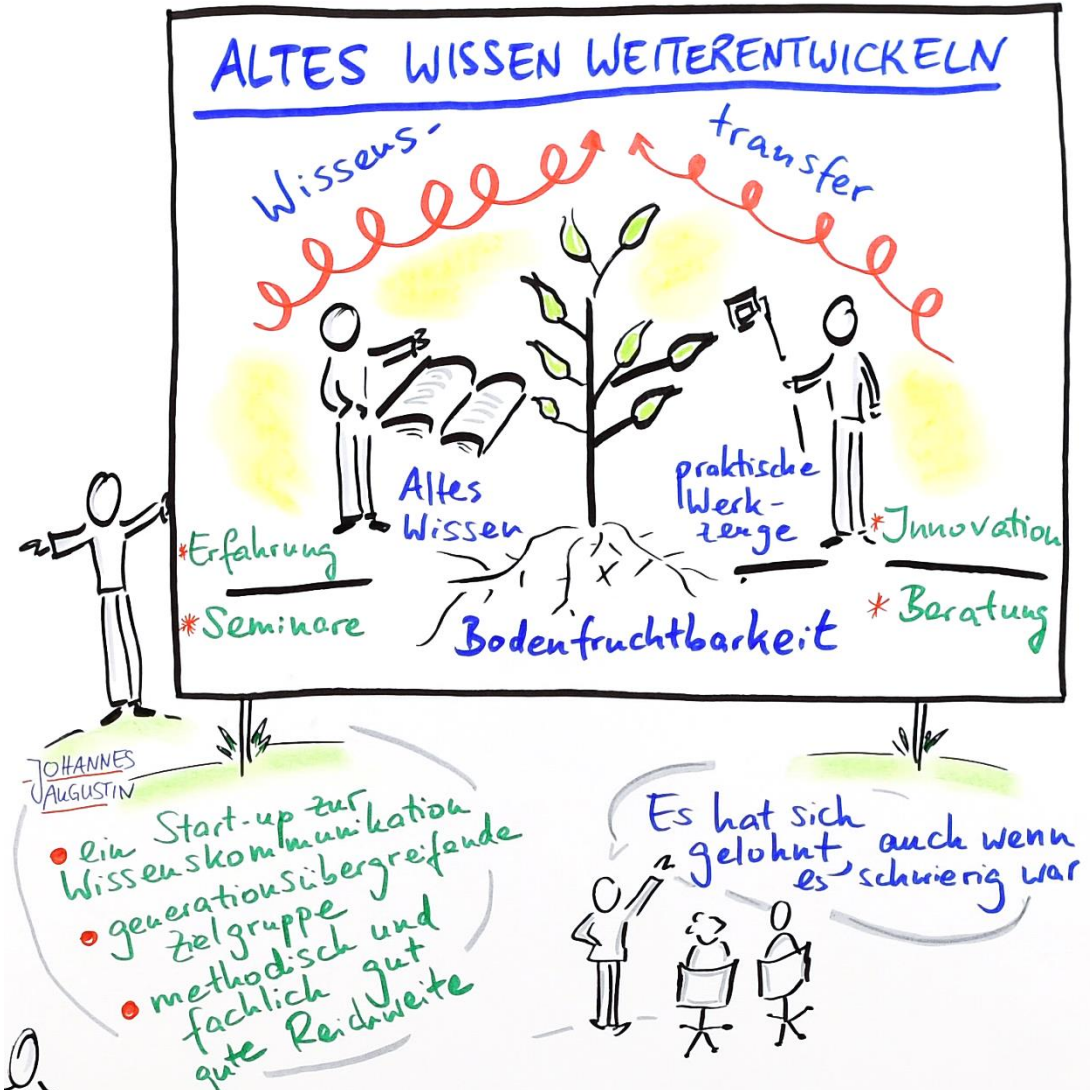 ALTES WISSEN WEITERENTWICKELN
Wissens-
transfer
Altes
Wissen
praktische
Werk-
zeuge
* Erfahrung
* Seminare
* Innovation
* Beratung
Bodenfruchtbarkeit
JOHANNES
AUGUSTIN
• ein Start-up zur
Wissenskommunikation
• generationsübergreifende
Zielgruppe
• methodisch und
fachlich gut
gute Reichweite
Es hat sich
gelohnt, auch wenn
es schwierig war